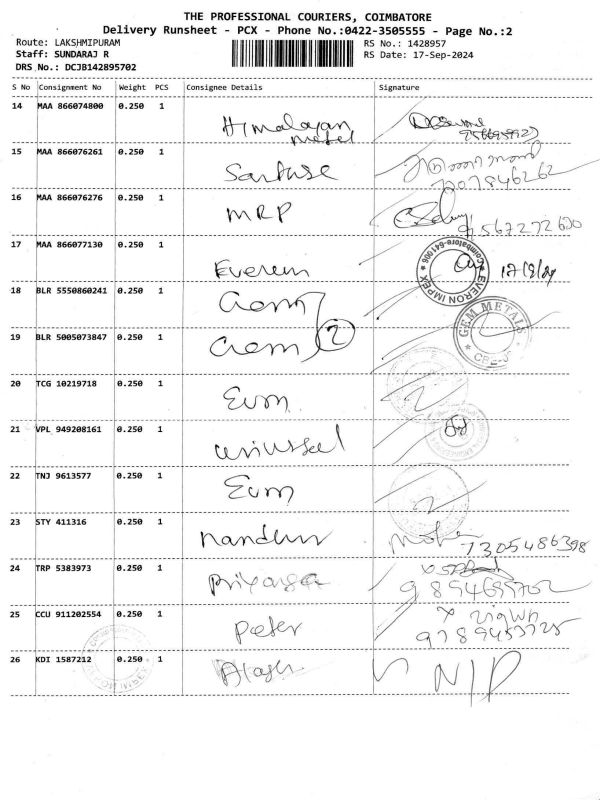 THE PROFESSIONAL COURIERS, COIMBATORE
Delivery Runsheet - PCX - Phone No.:0422-3505555 - Page No.:2
Route: LAKSHMIPURAM RS No.: 1428957
Staff: SUNDARAJ R RS Date: 17-Sep-2024
DRS No.: DCJB142895702
S No Consignment No Weight PCS Consignee Details Signature
14 MAA 866074800 0.250 1 Himalayan
metel
15 MAA 866076261 0.250 1
16 MAA 866076276 0.250 1 MRP
17 MAA 866077130 0.250 1 Everem
EVERON IMPEX Coimbatore-641006
18 BLR 5550860241 0.250 1 Gem
19 BLR 5005073847 0.250 1 Gem 2
GEM METALS
20 TCG 10219718 0.250 1 Evm
21 VPL 949208161 0.250 1
22 TNJ 9613577 0.250 1 Evm
23 STY 411316 0.250 1 7305486398
24 TRP 5383973 0.250 1 Priyanga
9894695702
25 CCU 911202554 0.250 1 Peter
26 KDI 1587212 0.250 1 N/P